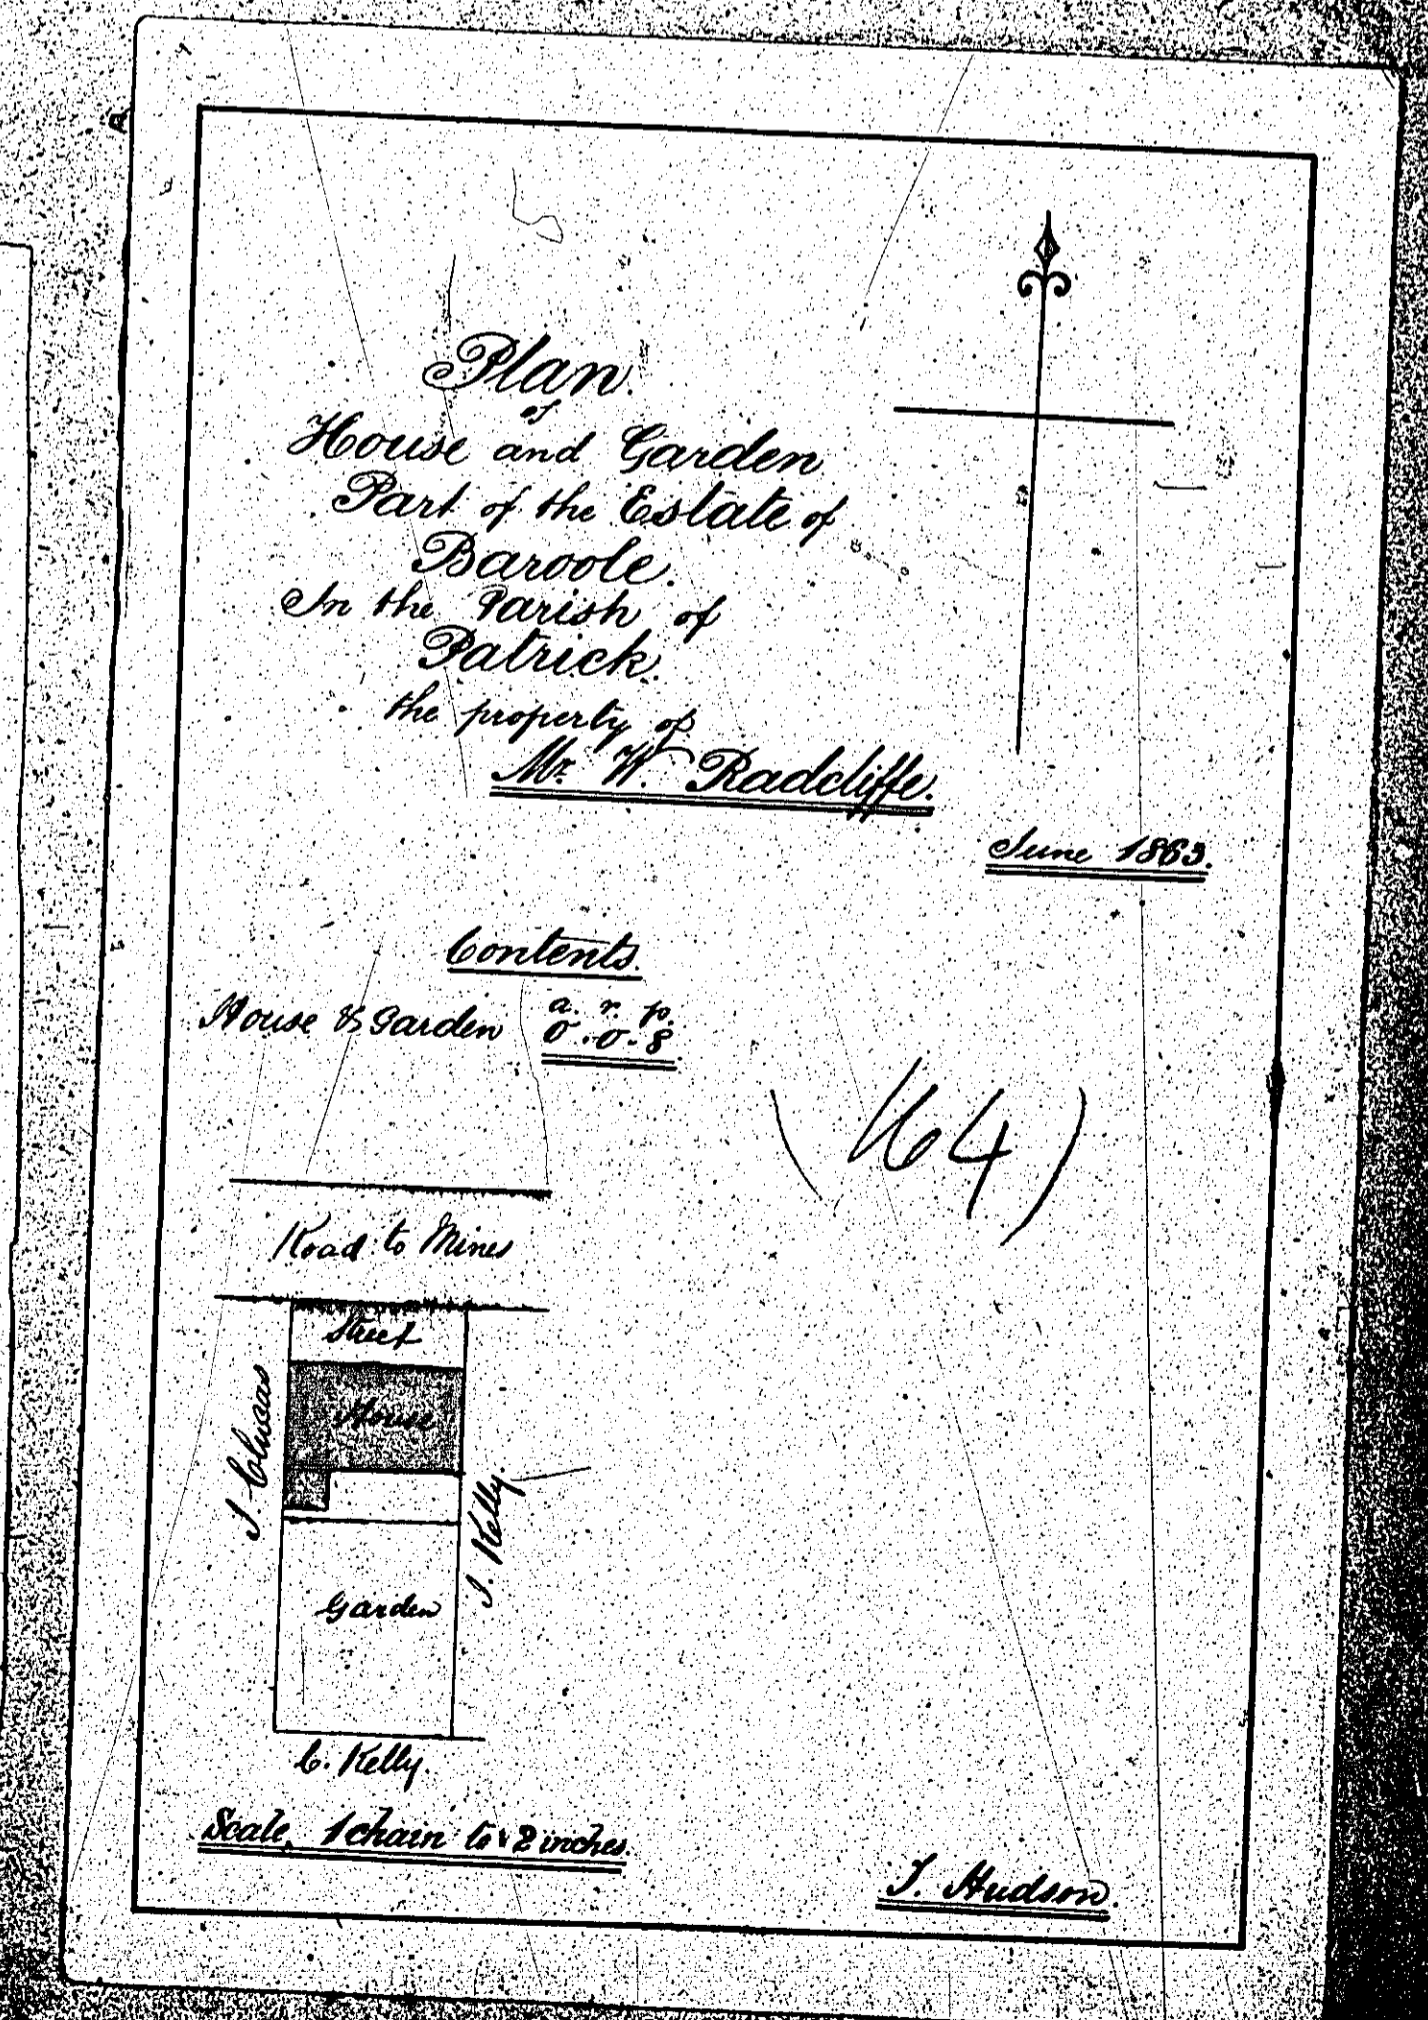 Plan.
of
House and Garden
Part of the Estate of
Baroole.
In the Parish of
Patrick.
the property of
Mr. W. Radcliffe.
June 1863.
Contents.
a. r. p.
House & Garden 0.0.8
(164)
Road to Mines
Street
House
J. Kelly.
Garden
C. Kelly.
Scale, 1 chain to 2 inches.
J. Hudson.